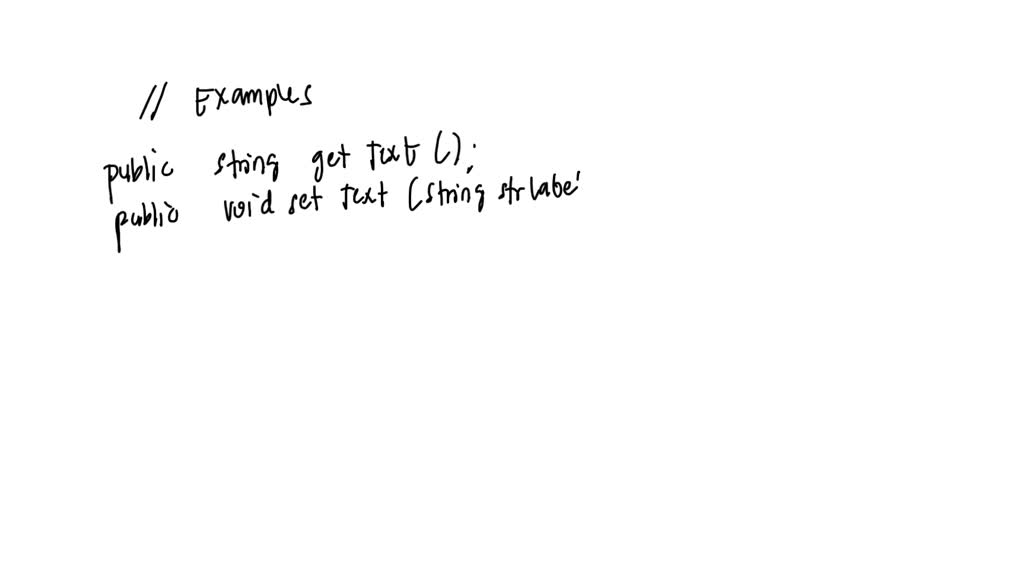 // Examples
public string get Text ();
public void set Text (string strlabe